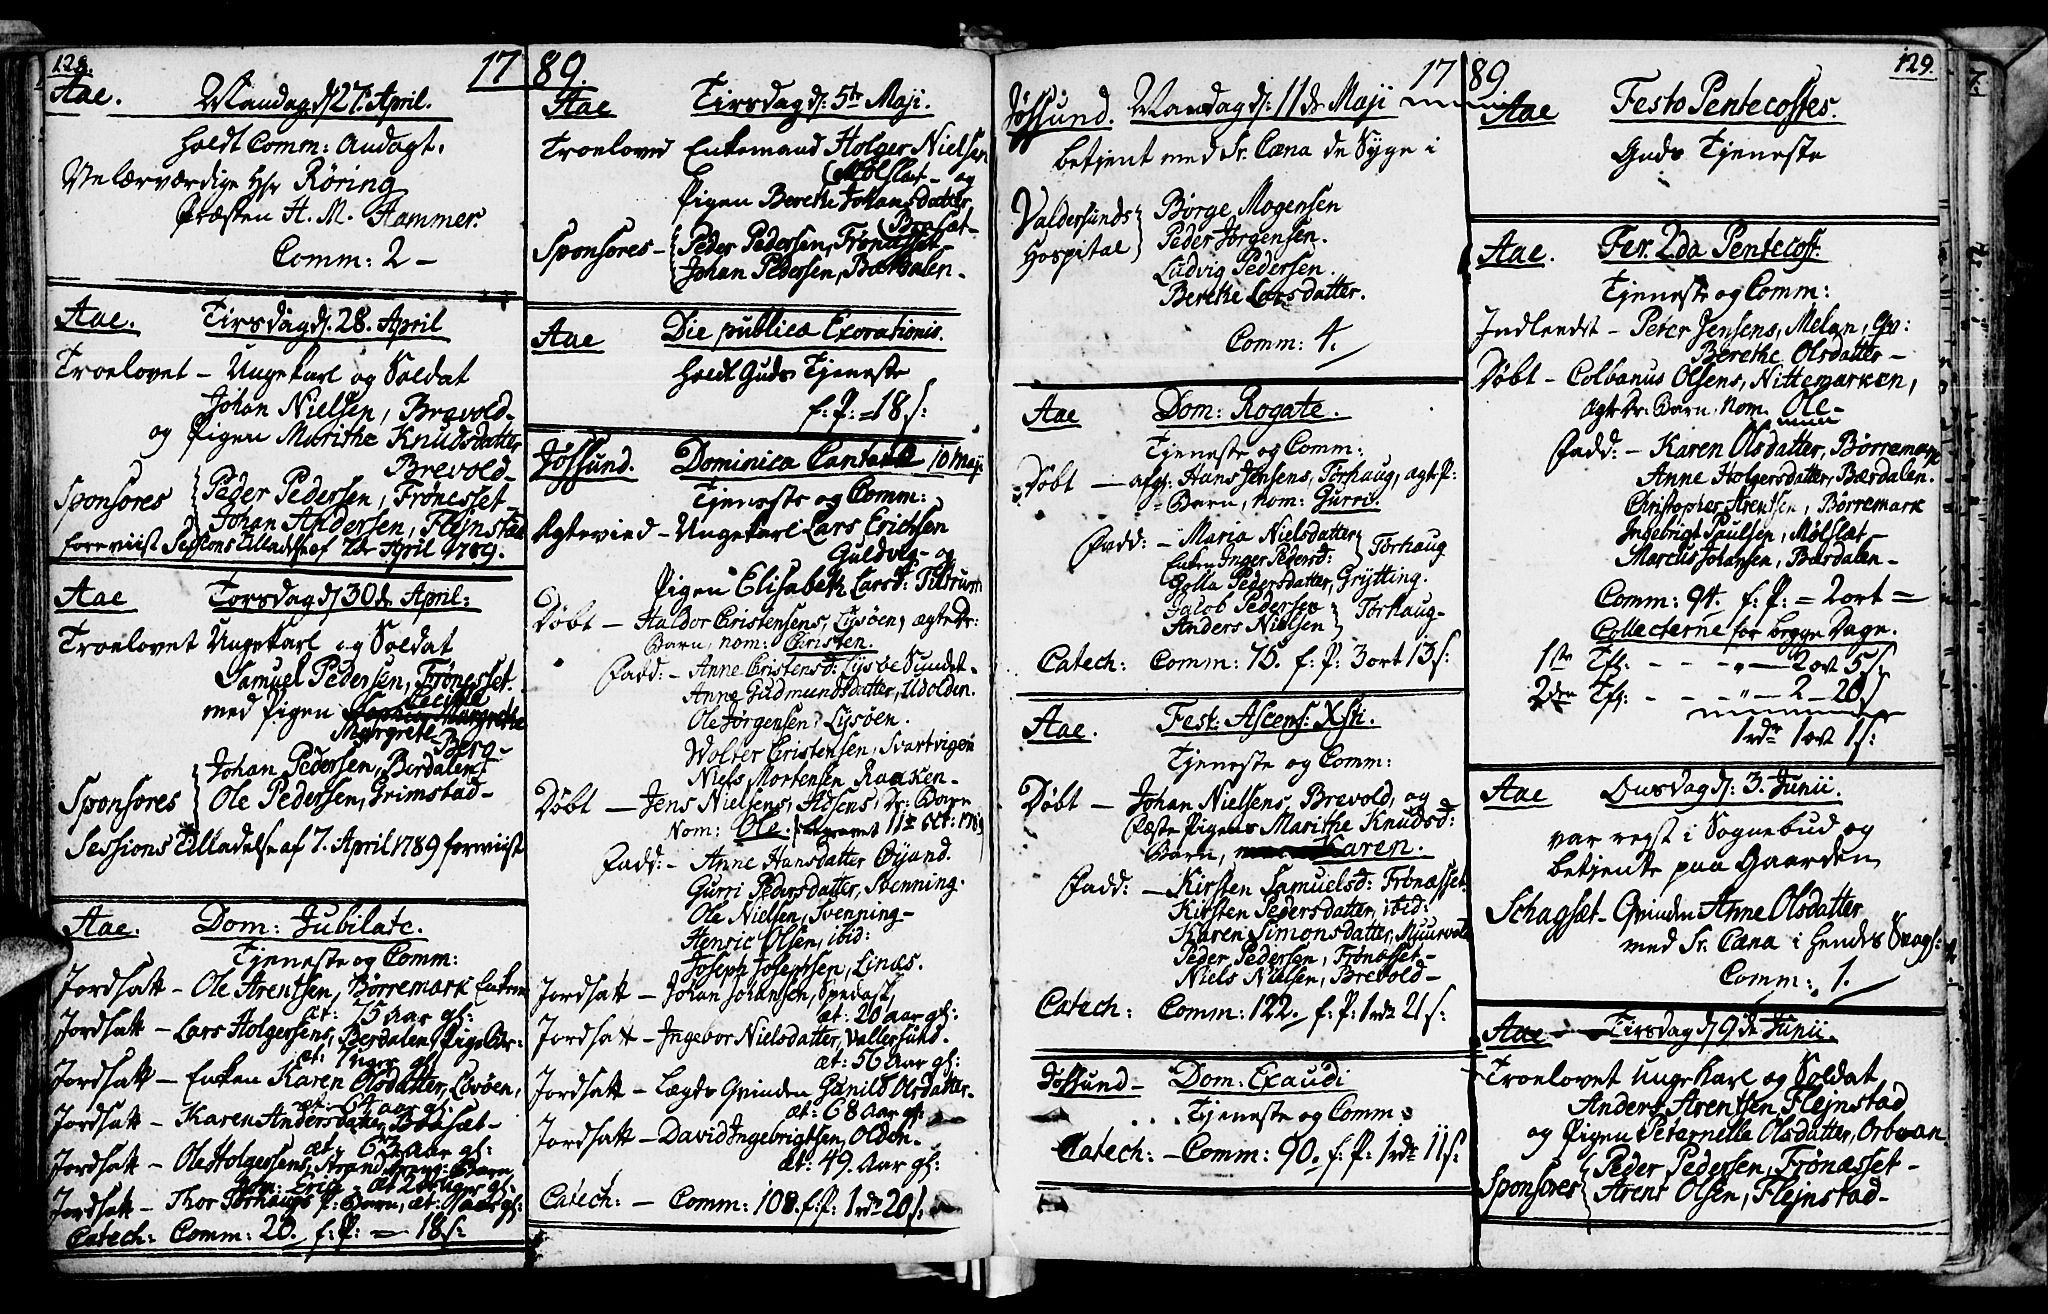 128.
1789.
Aae. Mandag d. 27. April.
holdt Comm: Andagt.
Velærværdige Hr Røring
Præsten H. M. Hammer.
Comm: 2 –
Aae. Tirsdag d. 28. April
Troelovet – Ungekarl og Soldat
Johan Nielsen, Brevold
og Pigen Marithe Knudsdatter
Brevold –
Sponsores Peder Pedersen, Frønesset
Johan Andersen, Flejnstad
foreviist Sessions Tilladelse af 7de April 1789.
Aae Torsdag d. 30de April:
Troelovet Ungekarl og Soldat
Samuel Pedersen, Frønesset.
med Pigen
Margrete Berg –
Johan Pedersen, Berdalen
Sponsores Ole Pedersen, Grimstad –
Sessions Tilladelse af 7. April 1789 foreviist
Aae. Dom: Jubilate.
Tjeneste og Comm:
Jordsatt – Ole Arentsen, Børremark Enkem
æt: 75 Aar gl:
Jordsatt – Lars Holgersens, Berdalen, Pigebr:
æt: 7 uger gl:
Jordsatt – Enken Karen Olsdatter, Lysøen,
æt: 64 aar gl:
Jordsatt – Karen Andersdatter, Brasæt –
æt: 63 aar gl:
Jordsatt – Ole Holgersens, Strand, dreng: Barn
nom: Erich – æt 2 uger gl:
Jordsatt – Thor Torhaugs P: Barn, æt: aar gl:
Catech: Comm: 20. f: P: = 18 s:
Aae Tirsdag d: 5te Maji.
Troeloved Enkemand Holger Nielsen
Mølslæt – og
Pigen Berethe Johansdatter
Bresæt –
Sponsores – Peder Pedersen, Frønesset –
Johan Pedersen, Bærdalen –
Aae Die publica Exorationis.
holdt Guds Tjeneste
f: P: = 18 s:
Jøssund. Dominica Cantate 10 Maji
Tjeneste og Comm:
Ægtevied – Ungekarl Lars Erichsen
Guldvig – og
Pigen Elisabeth Larsd: Tiltrum
Døbt – Haldor Christensens, Lysøen, ægte Dr:
Barn, nom: Christen.
Fadd: – Anne Christensd: Lysøe Sundet –
Anne Gudmundsdatter, Udolden.
Ole Jørgensen, Lysøen.
Wolter Christensen, Svartvigen
Niels Mortensen Raaken –
Døbt – Jens Nielsens, Adsens, Dr: Barn
Nom: Ole. begravet 11te Oct: 1789
Fadd: – Anne Hansdatter Øyand.
Gurri Pedersdatter, Svenning.
Ole Nielsen, Svenning –
Henric Olsen, ibid:
Joseph Josephsen, Linæs.
Jordsatt – Johan Johansen, Spedast,
æt: 20 aar gl:
Jordsatt – Ingebor Nielsdatter, Vallersund.
æt: 56 Aar gl:
Jordsatt – Lægds Qvinden Gunild Olsdatter –
æt: 68 Aar gl:
Jordsatt – David Ingebrigtsen, Olden –
æt: 49. Aar gl:
Catech: – Comm: 108. f: P: 1 rdr 20 s:
1789
129.
Jøssund. Mandag d: 11de Maji
betjent med Sr. Cæna de Syge i
Valdersunds Hospital
Børge Mogensen
Peder Jørgensen.
Ludvig Pedersen.
Berethe Larsdatter.
Comm: 4.
Aae Dom: Rogate.
Tjeneste og Comm:
Døbt – afg: Hans Jensens, Torhaug, ægt P:
Barn, nom: Gurri.
Fadd: – Maria Nielsdatter Torhaug
Enken Inger Pedersd:
Golla Pedersdatter, Grytting.
Jacob Pedersen Torhaug –
Anders Nielsen
Catech: Comm: 76. f: P: 3 ort 13 s:
Aae. Fest: Ascens: Xsti.
Tjeneste og Comm:
Døbt – Johan Nielsens, Brevold, og
Fæste Pigens Marithe Knudsd:
Barn, Karen.
Fadd: – Kirsten Samuelsd: Frønesset
Kirsten Pedersdatter, ibid:
Karen Simonsdatter, Muurvold
Peder Pedersen, Frønæsset –
Niels Nielsen, Brevold –
Catech: Comm: 122. f: P: 1 rdr 21 s:
Jøssund – Dom: Exaudi
Tjeneste og Comm:
Catech: – Comm: 90. f: P: 1 rdr 11 s:
Aae Festo Pentecostes.
Guds Tjeneste
Aae. Fer. 2da Pentecost:
Tjeneste og Comm:
Indledst – Peter Jensens, Melan, Qv:
Berethe Olsdatter –
Døbt – Colbanus Olsens, Nittemarken,
ægte Dr: Barn, nom. Ole –
Fadd: – Karen Olsdatter, Børremark
Anne Holgersdatter, Bærdalen.
Christopher Arentsen, Børremark
Ingebrigt Paulsen, Mølslæt –
Marcus Johansen, Bærdalen –
Comm: 94. f: P: = 2 ort =
Collecterne for begge Dage.
1ste Tfl: – – – 2 ort 5 s:
2den Tfl: – – – 2 – 20 s
1 rdr 1 ort 1 s:
Aae Onsdag d: 3. Junii.
var rejst i Sognebud og
betjente paa Gaarden
Schagsæt – Qvinden Anne Olsdatter
med Sr. Cæna i hendes Svagh:
Comm: 1.
Aae Tirsdag d. 9de Junii.
Troelovet Ungekarl og Soldat
Anders Arentsen Flejnstad
og Pigen Petarnelle Olsdatter, Ordvan
Sponsores Peder Pedersen, Frønæsset –
Arent Olsen, Flejnstad –